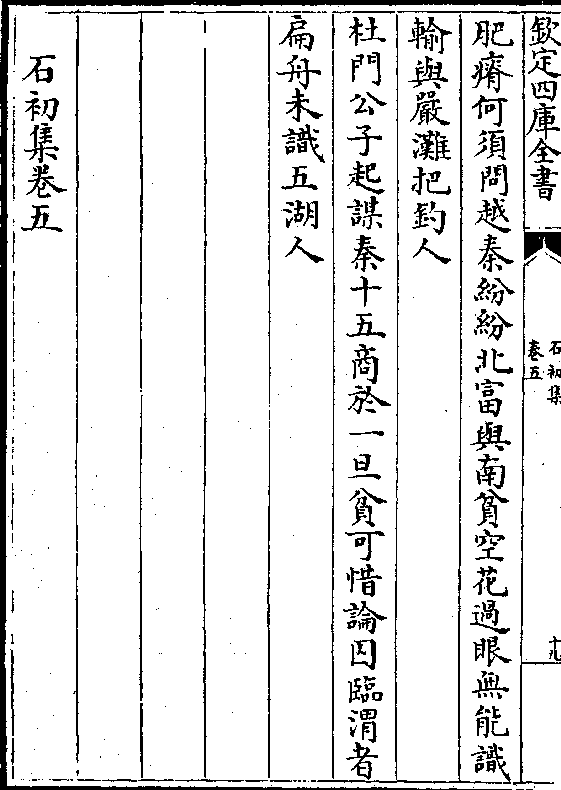 欽定四庫全書
石初集
卷五
十九
肥瘠何須問越秦紛紛北富與南貧空花過眼無能識
輸與嚴灘把釣人
杜門公子起謀秦十五商於一旦貧可惜論囚臨渭者
扁舟未識五湖人
石初集卷五